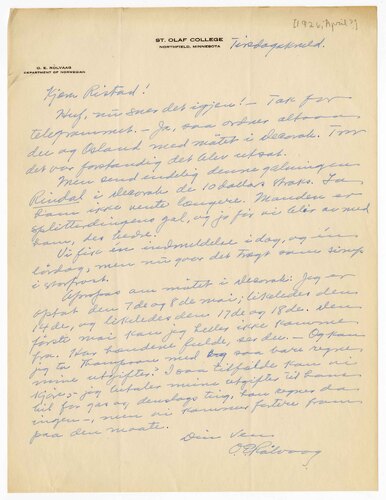 [1926, April?]
ST. OLAF COLLEGE
NORTHFIELD, MINNESOTA
Tirsdagskveld.
O. E. RÖLVAAG
DEPARTMENT OF NORWEGIAN
Kjære Ristad!
Huf, nu sner det igjen! – Tak for
telegrammet. – Ja, saa ordner altsaa
du og Osland med møtet i Decorah. Tror
det var forstandig det blev utsat.
Men send endelig denne galningen
Rindal i Decorah de 10 dollars straks. La
ham ikke vente længere. Manden er
splitterdingens gal, og jo før vi blir av med
ham, des bedre.
Vi fik én indmeldelse idag, og én
lørdag, men nu gaar det traat som sirup
i storfrost.
Apropos am møtet i Decorah: Jeg er
optat den 7de og 8de mai, likeledes den
14de, og likeledes den 17de og 18de. Den
første mai kan jeg heller ikke komme
fra. Har hænderne fulde, ser du. – Og kan
jeg ta Thompson med saa bare regne
mine utgifter? I saa tilfælde kan vi
kjøre; jeg betaler mine utgifter til hans
bil for gas og deslags ting, han regner da
ingen –, men vi kommer fortere fram
paa den maate.
Din Ven
O E Rölvaag